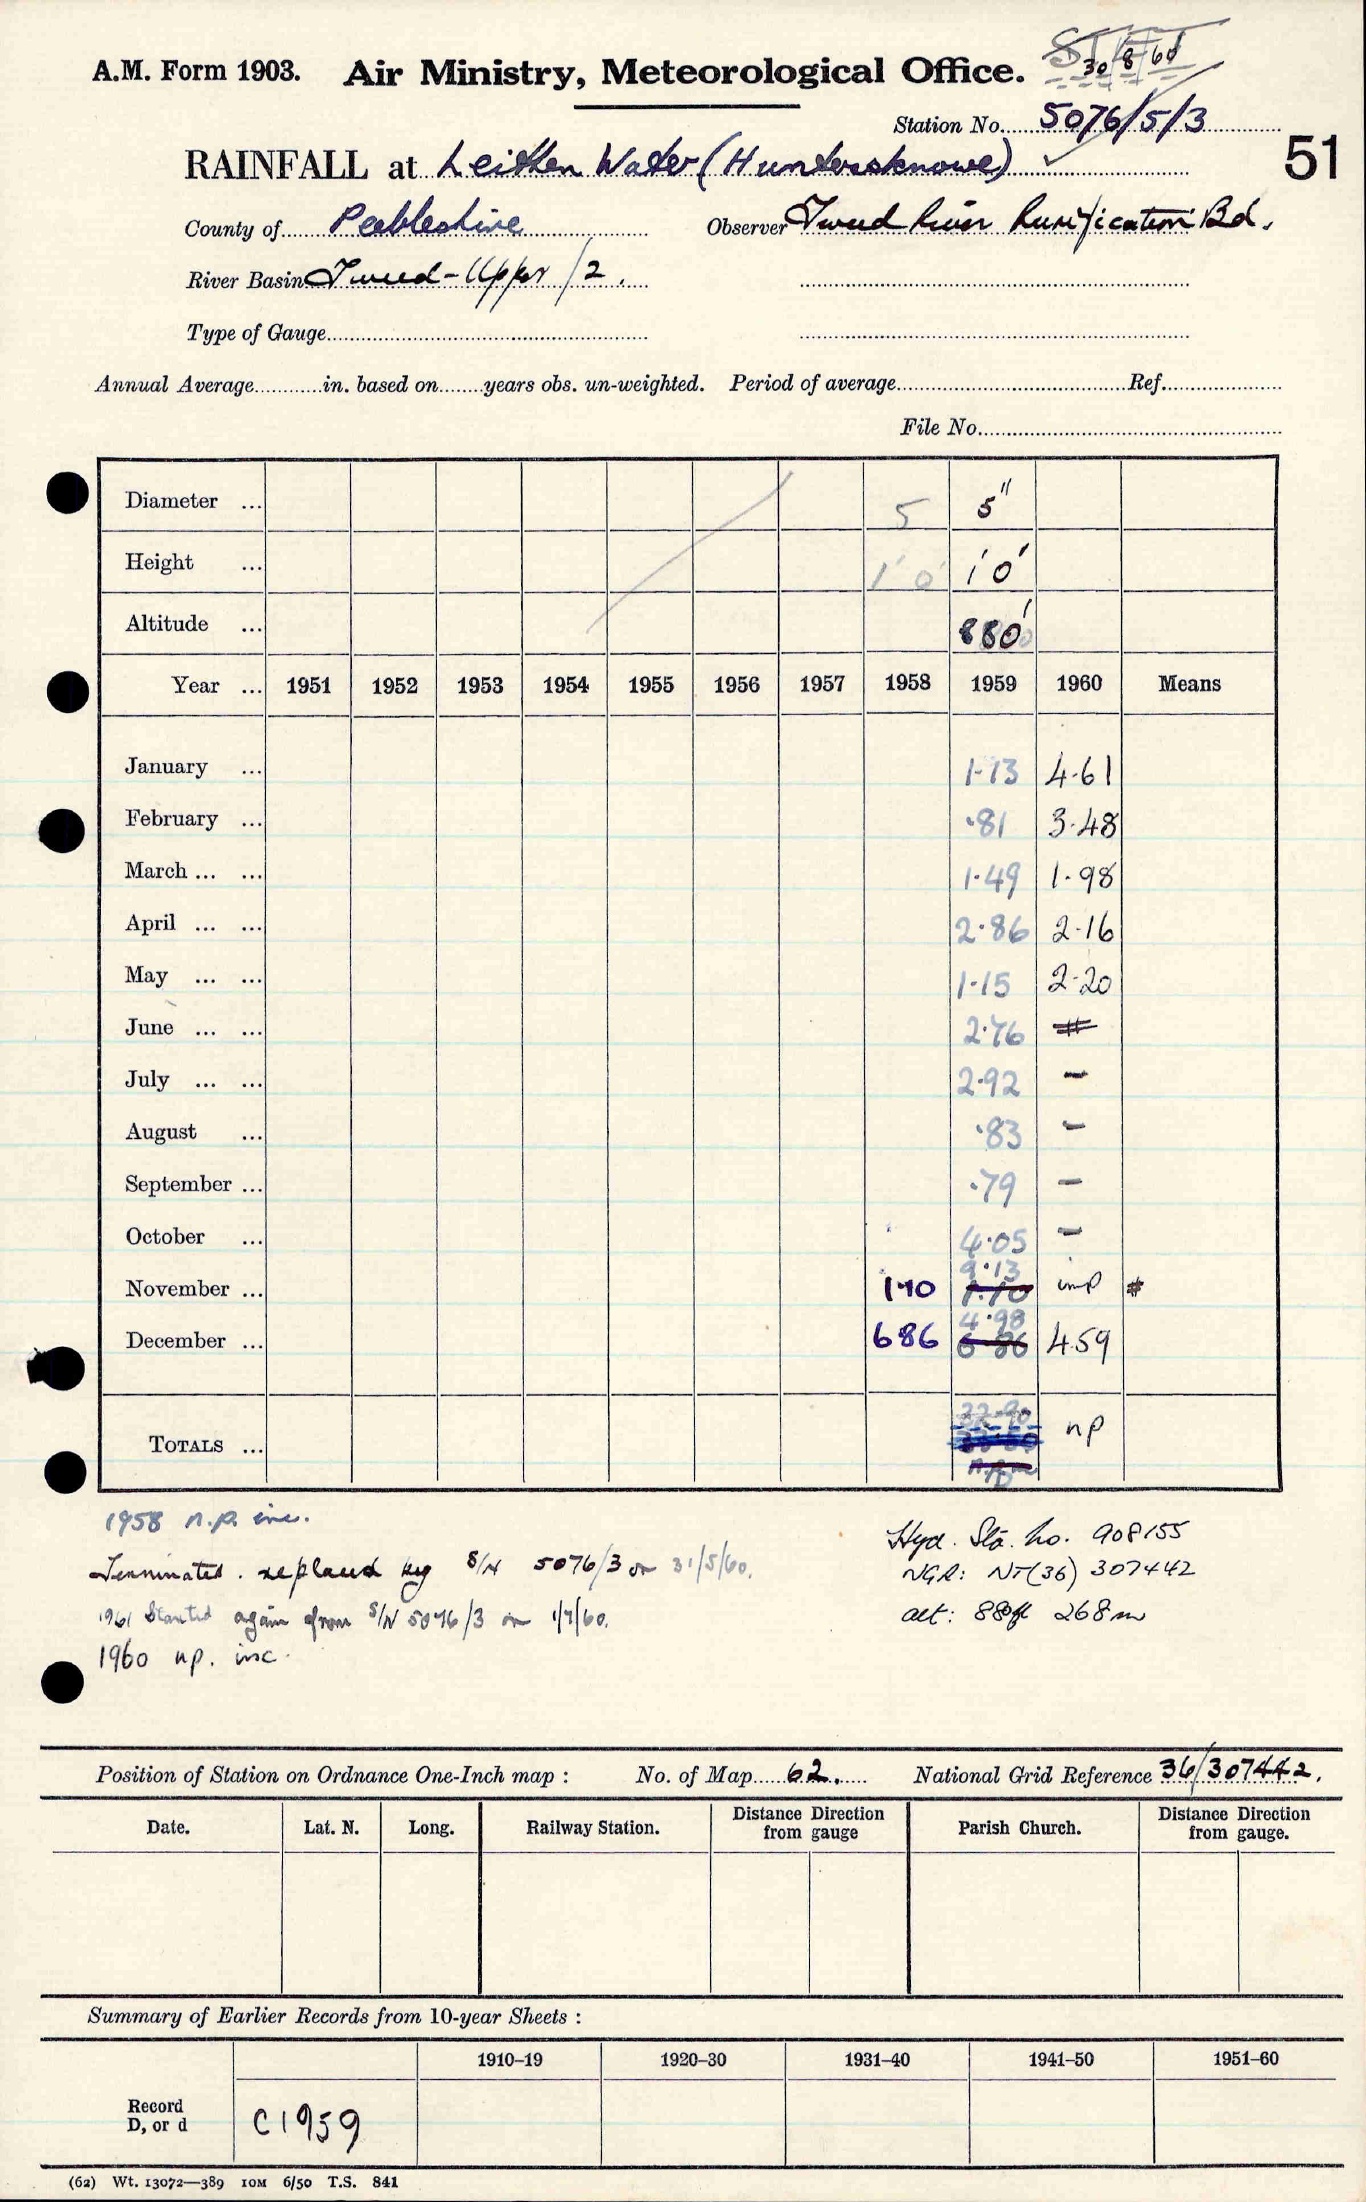 A.M. Form 1903. Air Ministry, Meteorological Office.
30 8 60
Station No. 5076/5/3
RAINFALL at Leithen Water (Huntersknowe)
51
County of Peeblesshire Observer Tweed River Purification Bd.
River Basin Tweed-Upper/2.
Type of Gauge
Annual Average in. based on years obs. un-weighted. Period of average Ref.
File No.
Diameter ... 5 5"
Height ... 1' 0" 1' 0"
Altitude ... 880'
Year ... 1951 1952 1953 1954 1955 1956 1957 1958 1959 1960 Means
January ... 1.13 4.61
February ... .81 3.48
March ... ... 1.49 1.98
April ... ... 2.86 2.16
May ... ... 1.15 2.20
June ... ... 2.76
July ... ... 2.92 -
August ... .83 -
September ... .79 -
October ... 4.05 -
November ... 1.10 9.13 1.10 imp #
December ... 6.86 4.98 6.86 4.59
TOTALS ... 32.90 np
1958 n.p. inc.
Terminated. replaced by S/N 5076/3 on 31/5/60.
1961 Started again from S/N 5076/3 on 1/7/60.
1960 np. inc.
Hyd. Sta. No. 908155
NGR: NT(36) 307442
alt: 880ft 268m
Position of Station on Ordnance One-Inch map : No. of Map 62. National Grid Reference 36/307442.
Date. Lat. N. Long. Railway Station. Distance Direction from gauge Parish Church. Distance Direction from gauge.
Summary of Earlier Records from 10-year Sheets :
1910–19 1920–30 1931–40 1941–50 1951–60
Record
D, or d C1959
(62) Wt. 13072—389 10M 6/50 T.S. 841